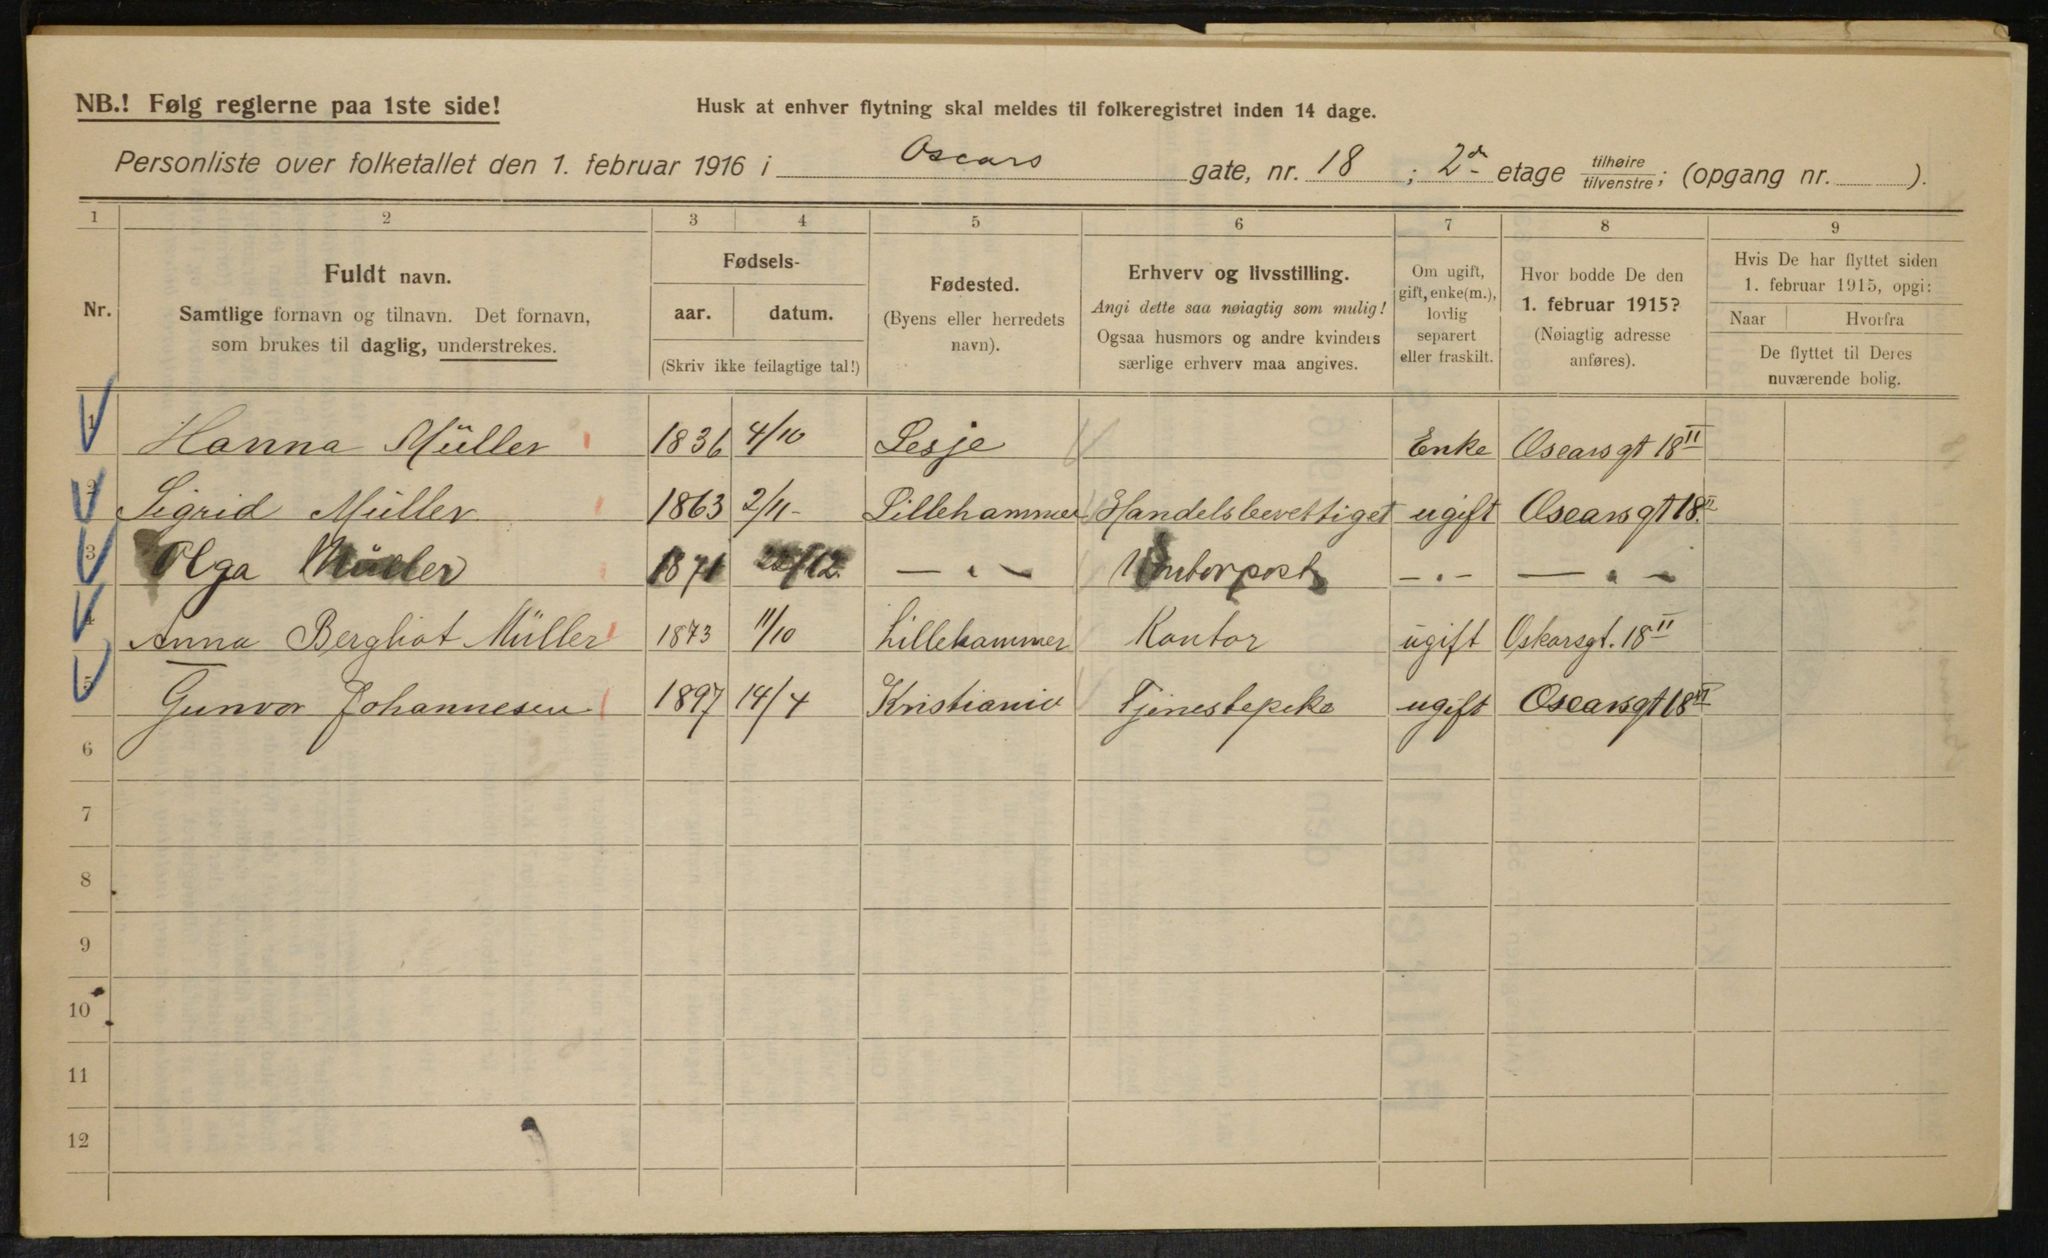 NB.! Følg reglerne paa 1ste side!
Husk at enhver flytning skal meldes til folkeregistret inden 14 dage.
Personliste over folketallet den 1. februar 1916 i Oscars gate, nr. 18; 2den etage tilhøire/tilvenstre; (opgang nr. ).
1 2 3 4 5 6 7 8 9
Nr.
Fuldt navn.
Samtlige fornavn og tilnavn. Det fornavn,
som brukes til daglig, understrekes.
Fødsels-
aar. datum.
(Skriv ikke feilagtige tal!)
Fødested.
(Byens eller herredets
navn).
Erhverv og livsstilling.
Angi dette saa nøiagtig som mulig!
Ogsaa husmors og andre kvinders
særlige erhverv maa angives.
Om ugift,
gift, enke(m.),
lovlig
separert
eller fraskilt.
Hvor bodde De den
1. februar 1915?
(Nøiagtig adresse
anføres).
Hvis De har flyttet siden
1. februar 1915, opgi:
Naar Hvorfra
De flyttet til Deres
nuværende bolig.
1 Hanna Müller 1836 4/10 Lesje Enke Oscarsgt 18 II
2 Sigrid Müller 1863 2/11- Lillehammer Handelsberettiget ugift Oscarsgt 18. II
3 Olga Müller 1871 22/12. — „ — Kontorpost — „ — — „ —
4 Anna Bergliot Müller 1873 11/10 Lillehammer Kontor ugift Oskarsgt. 18 II
5 Gunvor Johannesen 1897 14/4 Kristiania Tjenestepike ugift Oscarsgt 18 II
6
7
8
9
10
11
12